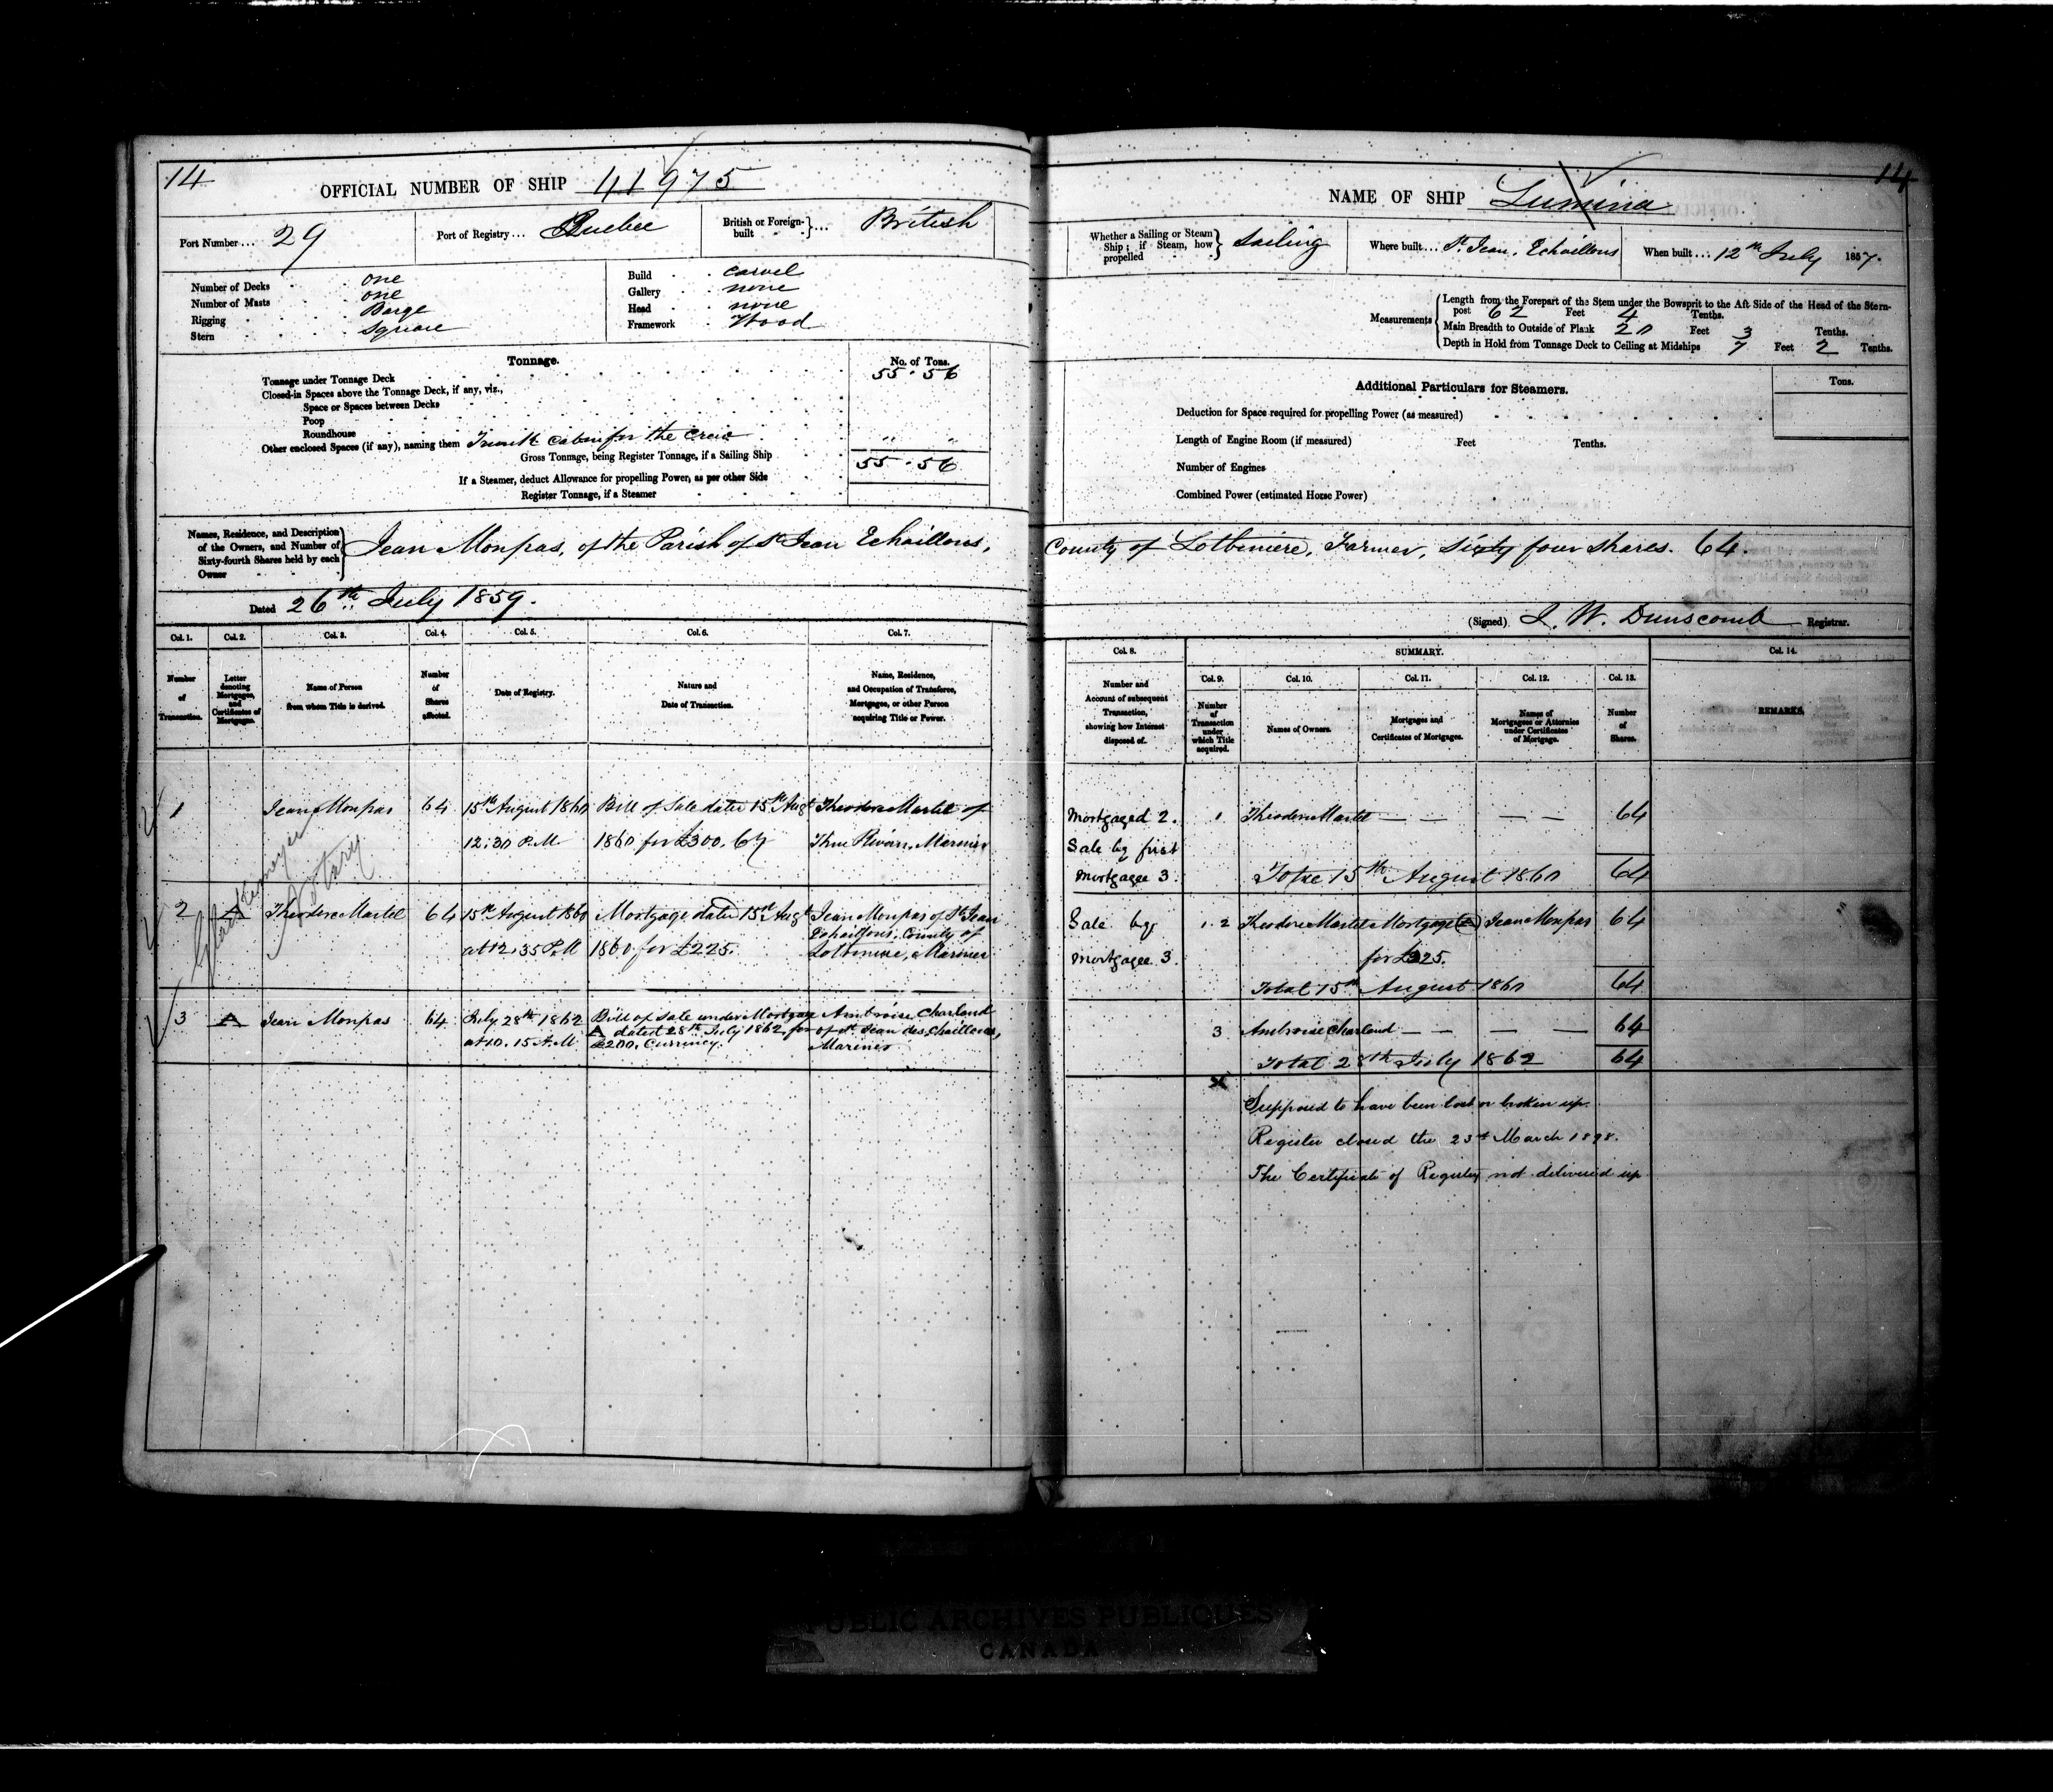 14
OFFICIAL NUMBER OF SHIP 41975
Port Number... 29
Port of Registry... Quebec
British or Foreign-built ... British
Number of Decks one
Number of Masts one
Rigging Barge
Stern Square
Build carvel
Gallery none
Head none
Framework Wood
Tonnage.
No. of Tons.
Tonnage under Tonnage Deck 55.56
Closed-in Spaces above the Tonnage Deck, if any, viz.,
Space or Spaces between Decks
Poop
Roundhouse
Other enclosed Spaces (if any), naming them Trunk cabin for the Crew " "
Gross Tonnage, being Register Tonnage, if a Sailing Ship 55.56
If a Steamer, deduct Allowance for propelling Power, as per other Side
Register Tonnage, if a Steamer
NAME OF SHIP Lumina
14
Whether a Sailing or Steam Ship; if Steam, how propelled Sailing
Where built... St. Jean, Echaillons
When built... 12th July 1857.
Measurements
Length from the Forepart of the Stem under the Bowsprit to the Aft Side of the Head of the Stern-
post 62 Feet 4 Tenths.
Main Breadth to Outside of Plank 20 Feet 3 Tenths.
Depth in Hold from Tonnage Deck to Ceiling at Midships 7 Feet 2 Tenths.
Additional Particulars for Steamers.
Tons.
Deduction for Space required for propelling Power (as measured)
Length of Engine Room (if measured) Feet Tenths.
Number of Engines
Combined Power (estimated Horse Power)
Names, Residence, and Description of the Owners, and Number of Sixty-fourth Shares held by each Owner
Jean Monpas, of the Parish of St Jean Echaillons, County of Lotbiniere, Farmer, Sixty four shares. 64.
Dated 26th July 1859.
(Signed) J. W. Dunscomb Registrar.
Col. 1. Col. 2. Col. 3. Col. 4. Col. 5. Col. 6. Col. 7.
Number of Transaction.
Letter denoting Mortgages, and Certificates of Mortgages.
Name of Person from whom Title is derived.
Number of Shares affected.
Date of Registry.
Nature and Date of Transaction.
Name, Residence, and Occupation of Transferee, Mortgagee, or other Person acquiring Title or Power.
1 Jean Monpas 64 15th August 1860 Bill of Sale dated 15th Augt Theodore Martel of
12:30 P.M 1860 for £300. Cy Three Rivers, Mariner
Glackemeyer
Notary
2 A Theodore Martel 64 15th August 1860 Mortgage dated 15th Augt Jean Monpas of St Jean
Echaillons, County of
at 12.35 P.M 1860 for £225. Lotbiniere, Mariner
3 A Jean Monpas 64 July 28th 1862 Bill of Sale under Mortgage Ambroise Charland
A dated 28th July 1862 for of St. Jean des Chaillons,
at 10.15 A.M £200. Currency. Mariner
Col. 8.
SUMMARY.
Col. 14.
Number and Account of subsequent Transaction, showing how Interest disposed of.
Col. 9. Col. 10. Col. 11. Col. 12. Col. 13.
Number of Transaction under which Title acquired.
Names of Owners.
Mortgages and Certificates of Mortgages.
Names of Mortgagees or Attornies under Certificates of Mortgage.
Number of Shares.
REMARKS.
Mortgaged 2. 1 Theodore Martel 64
Sale by first
Mortgagee 3. Total 15th August 1860 64
Sale by 1.2 Theodore Martel Mortgage (A) Jean Monpas 64
Mortgagee 3. for £225.
Total 15th August 1860 64
3 Ambroise Charland 64
Total 28th July 1862 64
x
Supposed to have been lost or broken up.
Register closed the 23d March 1898.
The Certificate of Registry not delivered up
PUBLIC ARCHIVES PUBLIQUES
CANADA